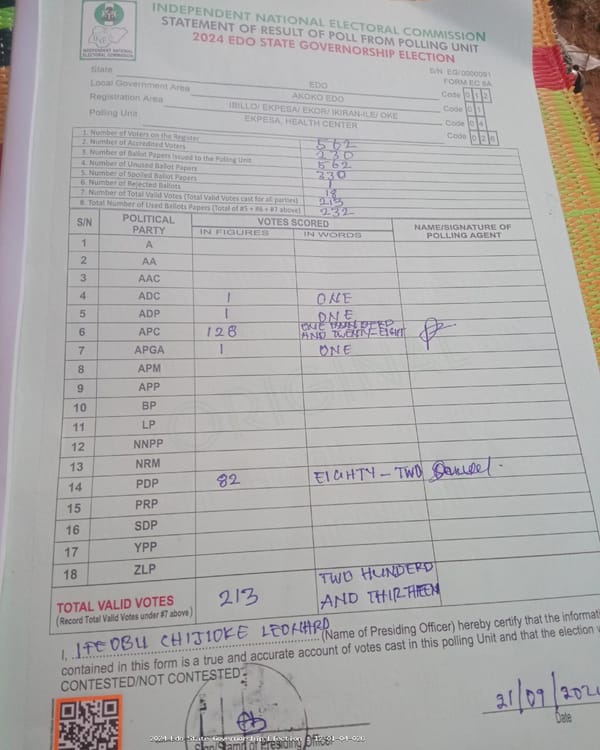 INDEPENDENT NATIONAL ELECTORAL COMMISSION
STATEMENT OF RESULT OF POLL FROM POLLING UNIT
2024 EDO STATE GOVERNORSHIP ELECTION
INDEPENDENT NATIONAL
ELECTORAL COMMISSION
S/N EG/0000091
FORM EC 8A
State EDO Code 012
Local Government Area AKOKO EDO Code 01
Registration Area IBILLO/ EKPESA/ EKOR/ IKIRAN-ILE/ OKE Code 04
Polling Unit EKPESA, HEALTH CENTER Code 026
1. Number of Voters on the Register 562
2. Number of Accredited Voters 230
3. Number of Ballot Papers Issued to the Polling Unit 562
4. Number of Unused Ballot Papers 330
5. Number of Spoiled Ballot Papers 1
6. Number of Rejected Ballots 18
7. Number of Total Valid Votes (Total Valid Votes cast for all parties) 213
8. Total Number of Used Ballots Papers (Total of #5 + #6 + #7 above) 232
S/N POLITICAL PARTY VOTES SCORED NAME/SIGNATURE OF POLLING AGENT
IN FIGURES IN WORDS
1 A
2 AA
3 AAC
4 ADC 1 ONE
5 ADP 1 ONE
6 APC 128 ONE HUNDRED AND TWENTY-EIGHT
7 APGA 1 ONE
8 APM
9 APP
10 BP
11 LP
12 NNPP
13 NRM
14 PDP 82 EIGHTY-TWO
15 PRP
16 SDP
17 YPP
18 ZLP
TOTAL VALID VOTES 213 TWO HUNDRED AND THIRTHEEN
(Record Total Valid Votes under #7 above)
I, IFEOBU CHIJIOKE LEONARD (Name of Presiding Officer) hereby certify that the informati
contained in this form is a true and accurate account of votes cast in this polling Unit and that the election w
CONTESTED/NOT CONTESTED
21/09/202
Date
2024 Edo State Governorship Election : 12-01-04-026